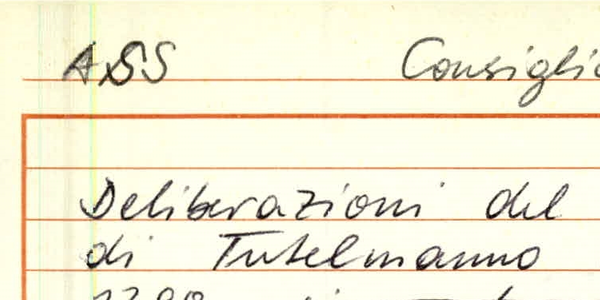 ASS Consiglio
Deliberazioni del
di Tutelmanno